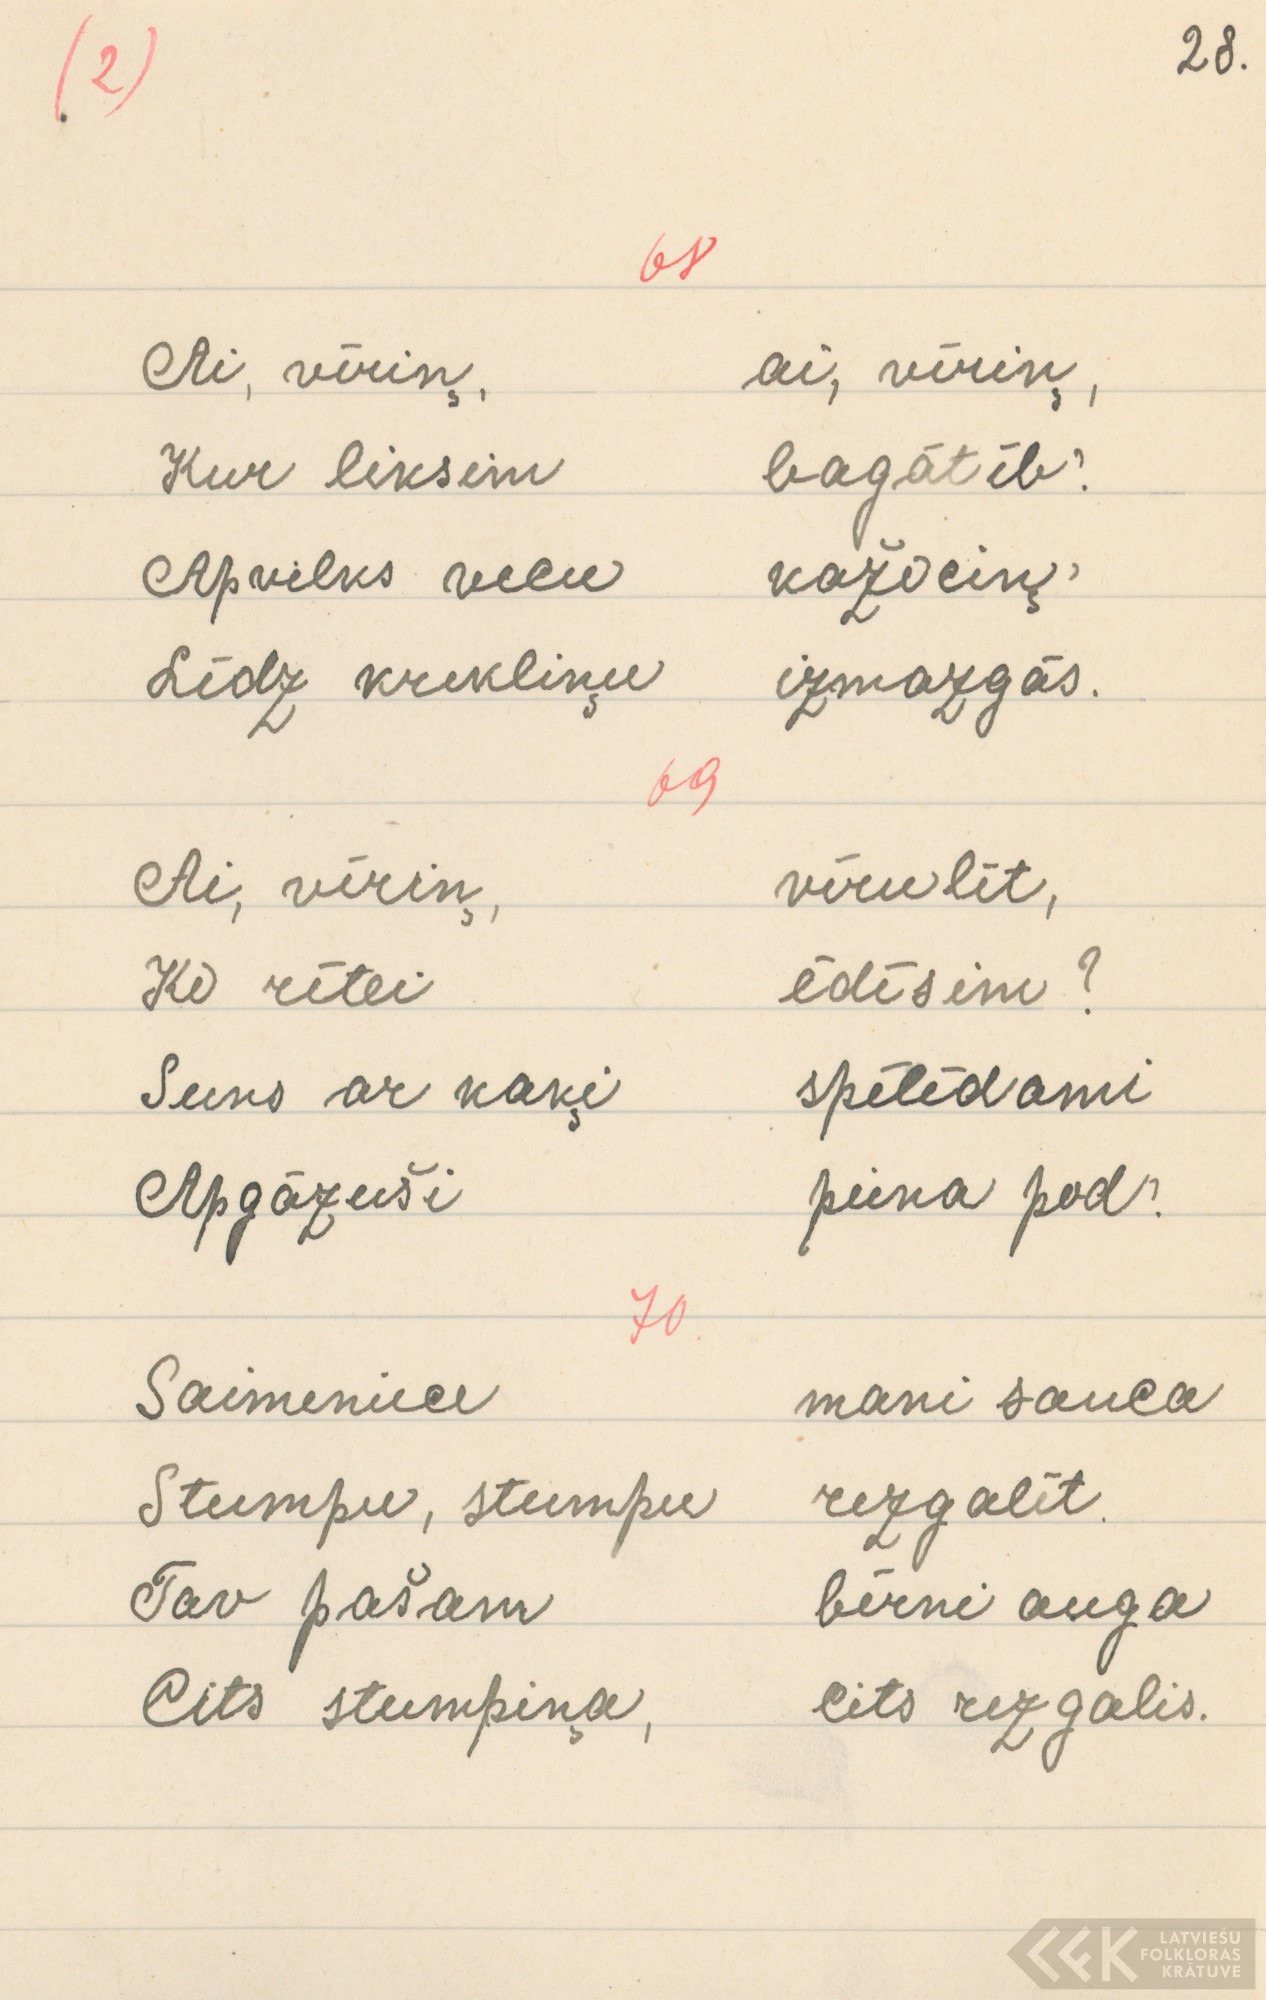 (2)
28.
68
Ai, vīriņ, ai, vīriņ,
Kur liksim bagātīb'?
Apvilks vecu kažociņ'
Līdz krekliņu izmazgās.
69
Ai, vīriņ, vīrulīt,
Ko rītei ēdīsim?
Suns ar kaķi spēlēdami
Apgāzuši piena pod'.
70
Saimeniece mani sauca
Stumpu, stumpu rezgalīt.
Tav pašam bērni auga
Cits stumpiņa, cits rezgalis.
LATVIEŠU
FOLKLORAS
KRĀTUVE